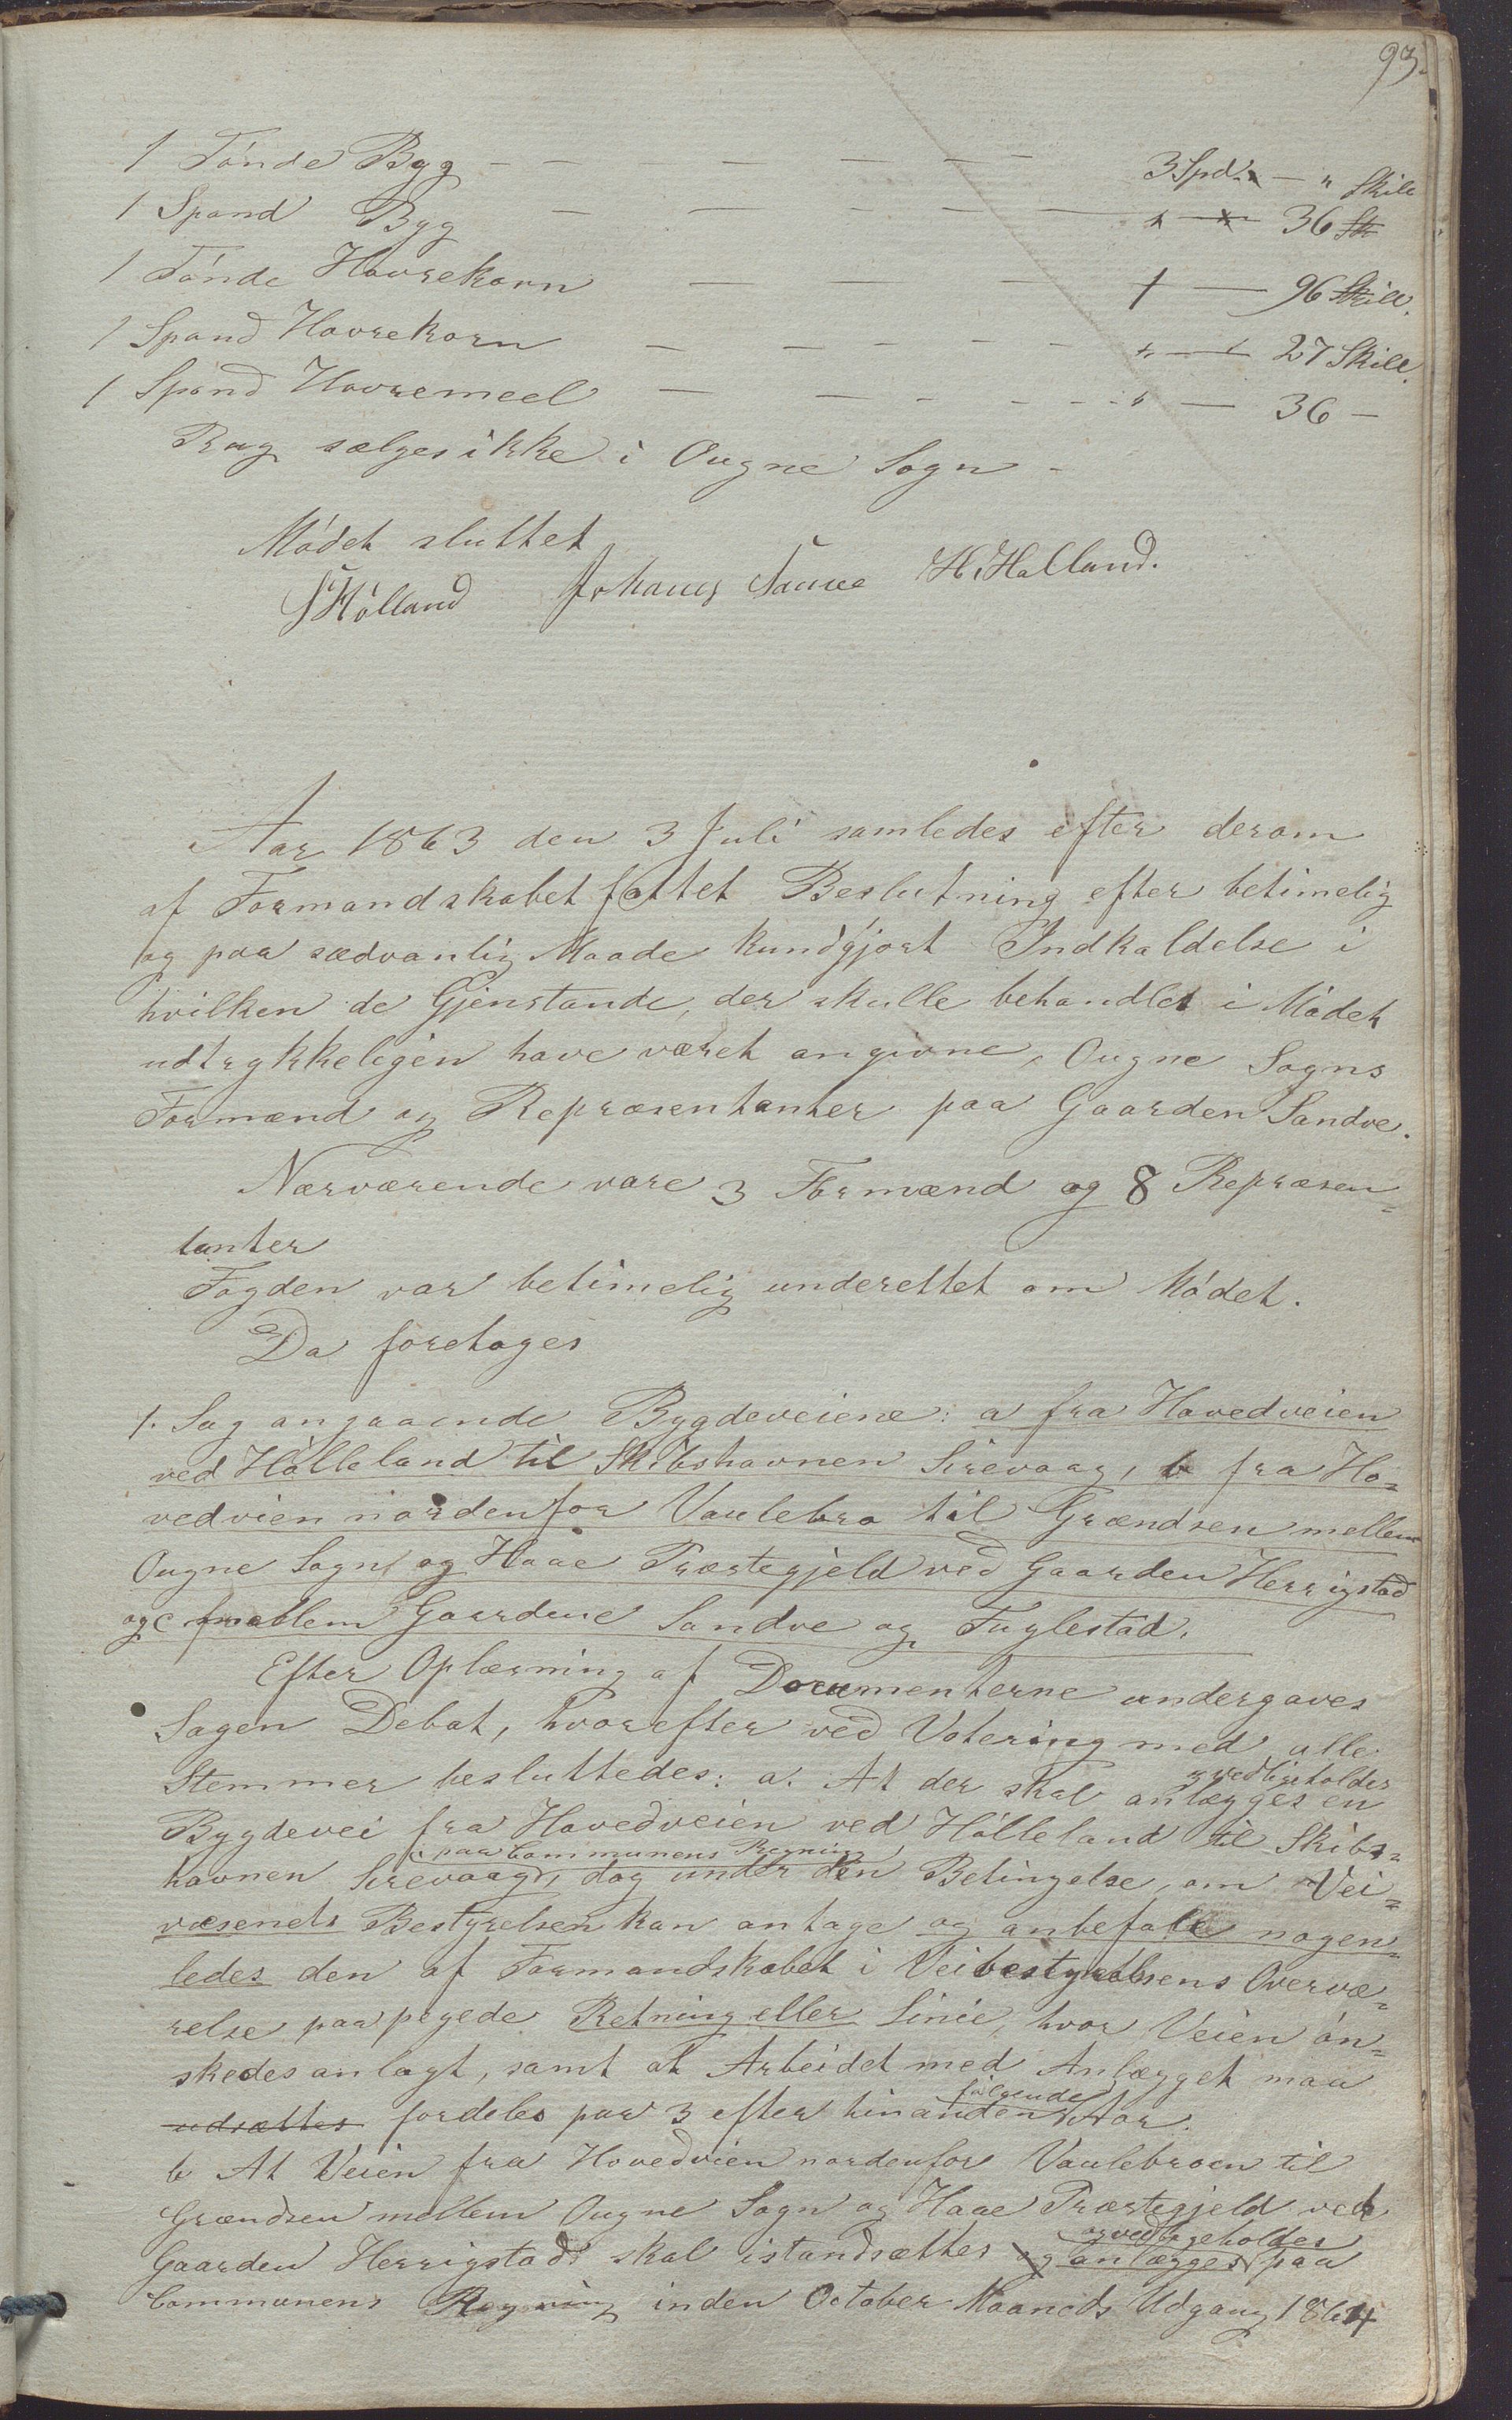 93.
1 Tónde Byg — — — — — 3 Spd. — " Skill
1 Spand Byg — — — — — " — 36 Sk
1 Tónde Havrekorn — — — 1 — 96 Skill.
1 Spand Havrekorn — — — — — " — 27 Skill.
1 Spand Havremeel — — — — — " — 36 —
Rug sælges ikke i Ougne Sogn —
Módet sluttet
Hólland Johans H. Halland.
Aar 1863 den 3 Juli samledes efter derom
af Formandskabet fattet Beslutning efter betimelig
og paa sædvanlig Maade kundgjort Indkaldelse i
hvilken de Gjenstande, der skulle behandlet i Módet
udtrykkeligen have været angivne, Ougne Sogns
Formænd og Repræsentanter paa Gaarden Sandve.
Nærværende vare 3 Formænd og 8 Repræsen=
tanter
Fogden var betimelig underettet om Módet.
Da foretoges
1. Sag angaaende Bygdeveiene: a fra Hovedveien
ved Hólleland til Skibshavnen Sirevaag, b fra Ho=
vedveien nordenfor Vaulebro til Grændsen mellem
Ougne Sogn og Haae Præstegjeld ved Gaarden Herrigstad
og c mellem Gaardene Sandve og Fuglestad.
Efter Oplæsning af Documenterne undergaves
Sagen Debat, hvorefter ved Votering med alle
Stemmer besluttedes: a. At der skal anlægges en
og vedligeholdes
Bygdevei fra Hovedveien ved Hólleland til Skibs=
paa Communens Regning
havnen Sirevaag, dog under den Betingelse, om Vei=
væsenets Bestyrelsen kan antage og anbefale nogen=
ledes den af Formandskabet i Veibestyrelsens Overvæ=
relse paapegede Retning eller Linie, hvor Veien ón=
skedes anlagt, samt at Arbeidet med Anlægget maa
udsættes fordeles paa 3 efter hinanden fólgende Aar.
b At Veien fra Hovedveien nordenfor Vaulebroen til
Grændsen mellem Ougne Sogn og Haae Præstegjeld ved
Gaarden Herrigstad skal istandsættes og anlægges og vedligeholdes paa
Communens Regning inden October Maaneds Udgang 1864